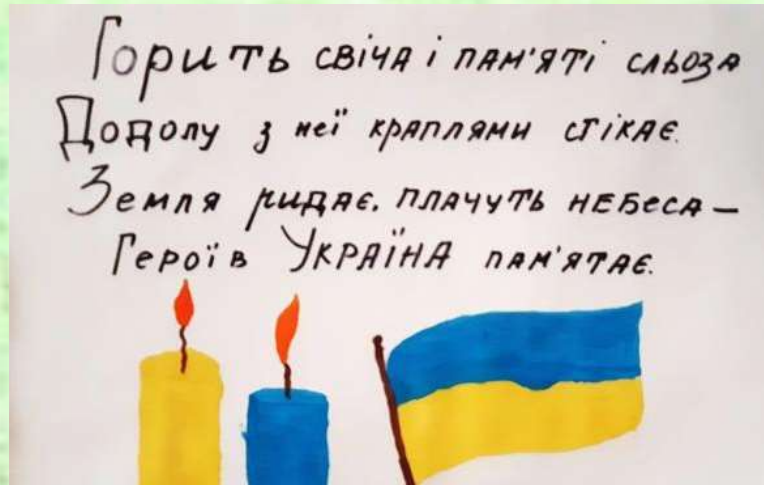 Горить свіча і пам'яті сльоза
Додолу з неї краплями стікає.
Земля ридає, плачуть небеса –
Героїв Україна пам'ятає.